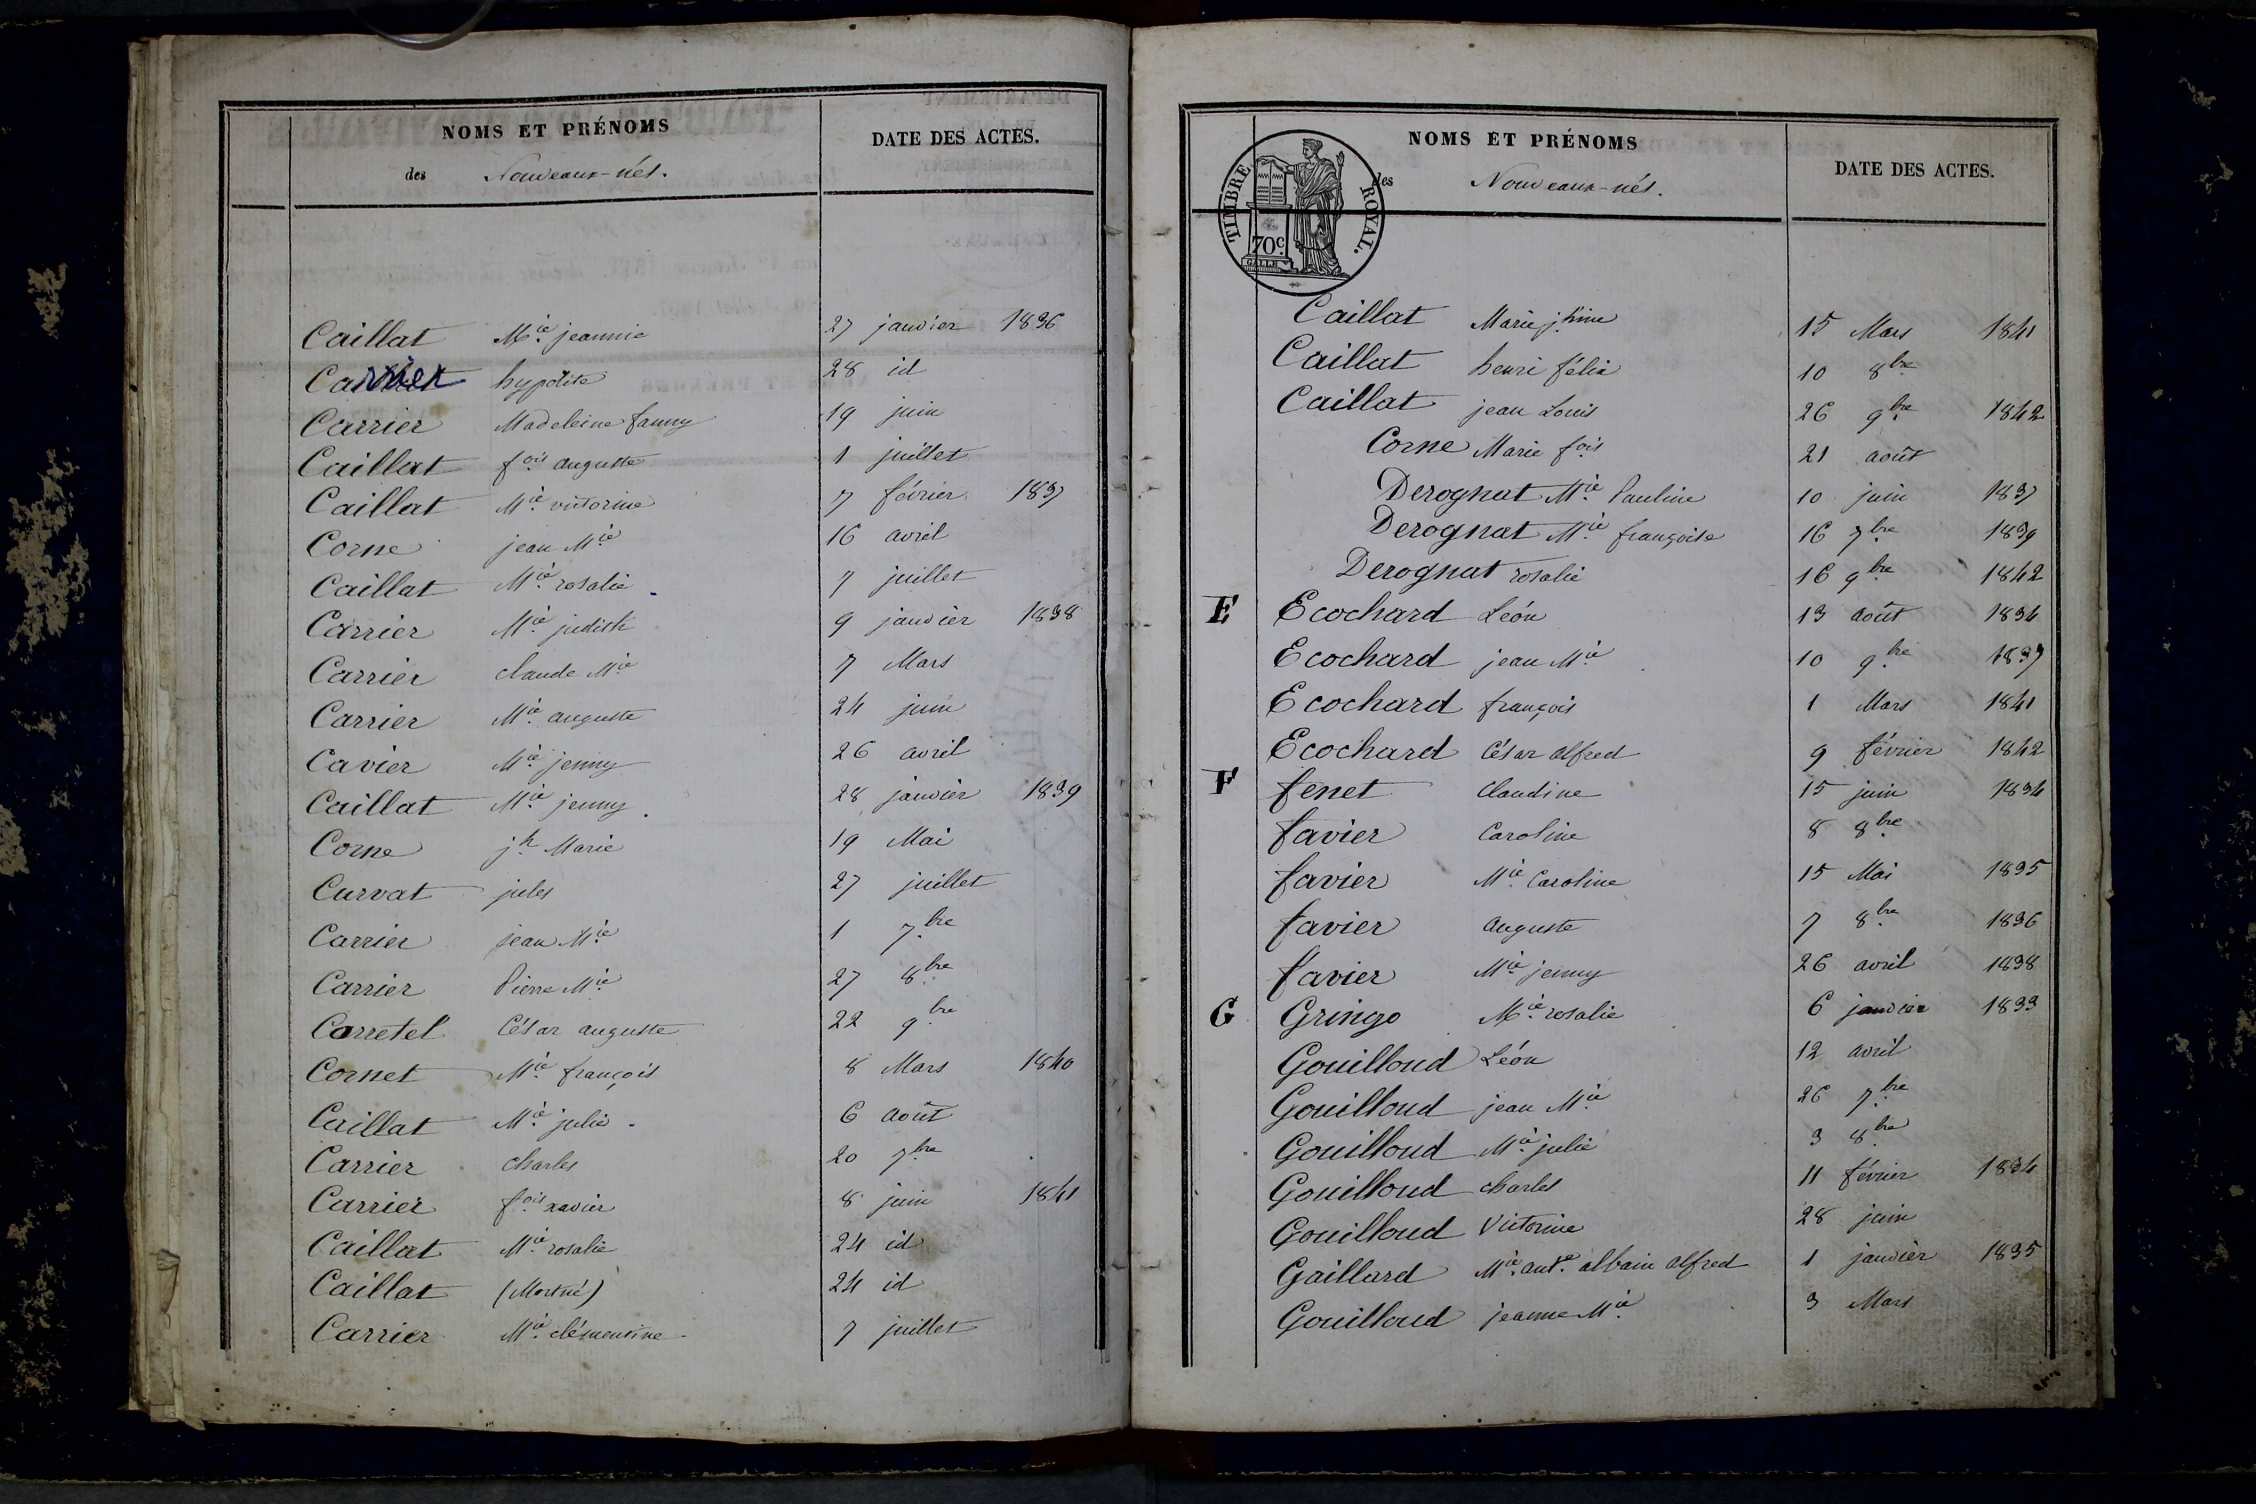 NOMS ET PRÉNOMS
des Nouveaux-nés.
DATE DES ACTES.
Caillat Mie jeannie 27 janvier 1836
Carrier hypolite 28 id
Carrier Madeleine fanny 19 juin
Caillat fois auguste 1 juillet
Caillat Mie victorine 7 février 1837
Corne jean Mie 16 avril
Caillat Mie rosalie 7 juillet
Carrier Mie judith 9 janvier 1838
Carrier claude Mie 7 Mars
Carrier Mie auguste 24 juin
Cavier Mie jenny 26 avril
Caillat Mie jenny 28 janvier 1839
Corne jh Marie 19 Mai
Curvat jules 27 juillet
Carrier jean Mie 1 7bre
Carrier Pierre Mie 27 8bre
Carretel César auguste 22 9bre
Cornet Mie françois 8 Mars 1840
Caillat Mie julie 6 août
Carrier charles 20 7bre
Carrier fois xavier 8 juin 1841
Caillat Mie rosalie 24 id
Caillat (Mortné) 24 id
Carrier Mie clémentine 7 juillet
NOMS ET PRÉNOMS
des Nouveaux-nés.
DATE DES ACTES.
TIMBRE ROYAL.
70c
GALLE
Caillat Marie jhine 15 Mars 1841
Caillat henri félix 10 8bre
Caillat jean Louis 26 9bre 1842
Corne Marie fois 21 août
Derognat Mie Pauline 10 juin 1837
Derognat Mie françoise 16 7bre 1839
Derognat rosalie 16 9bre 1842
E Ecochard Léon 13 août 1834
Ecochard jean Mie 10 9bre 1837
Ecochard françois 1 Mars 1841
Ecochard César alfred 9 février 1842
F fenet Claudine 15 juin 1834
favier Caroline 8 8bre
favier Mie Caroline 15 Mai 1835
favier Auguste 7 8bre 1836
favier Mie jenny 26 avril 1838
G Gringo Mie rosalie 6 janvier 1833
Gouilloud Léon 12 avril
Gouilloud jean Mie 26 7bre
Gouilloud Mie julie 3 8bre
Gouilloud charles 11 février 1834
Gouilloud Victorine 28 juin
Gaillard Mie ante albain alfred 1 janvier 1835
Gouilloud jeanne Mie 3 Mars